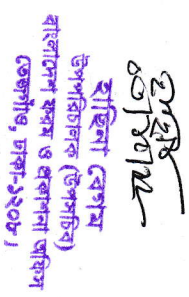 রাহিলা বেগম
উপপরিচালক (উপসচিব)
বাংলাদেশ ফরম ও প্রকাশনা অফিস
তেজগাঁও, ঢাকা-১২০৮।